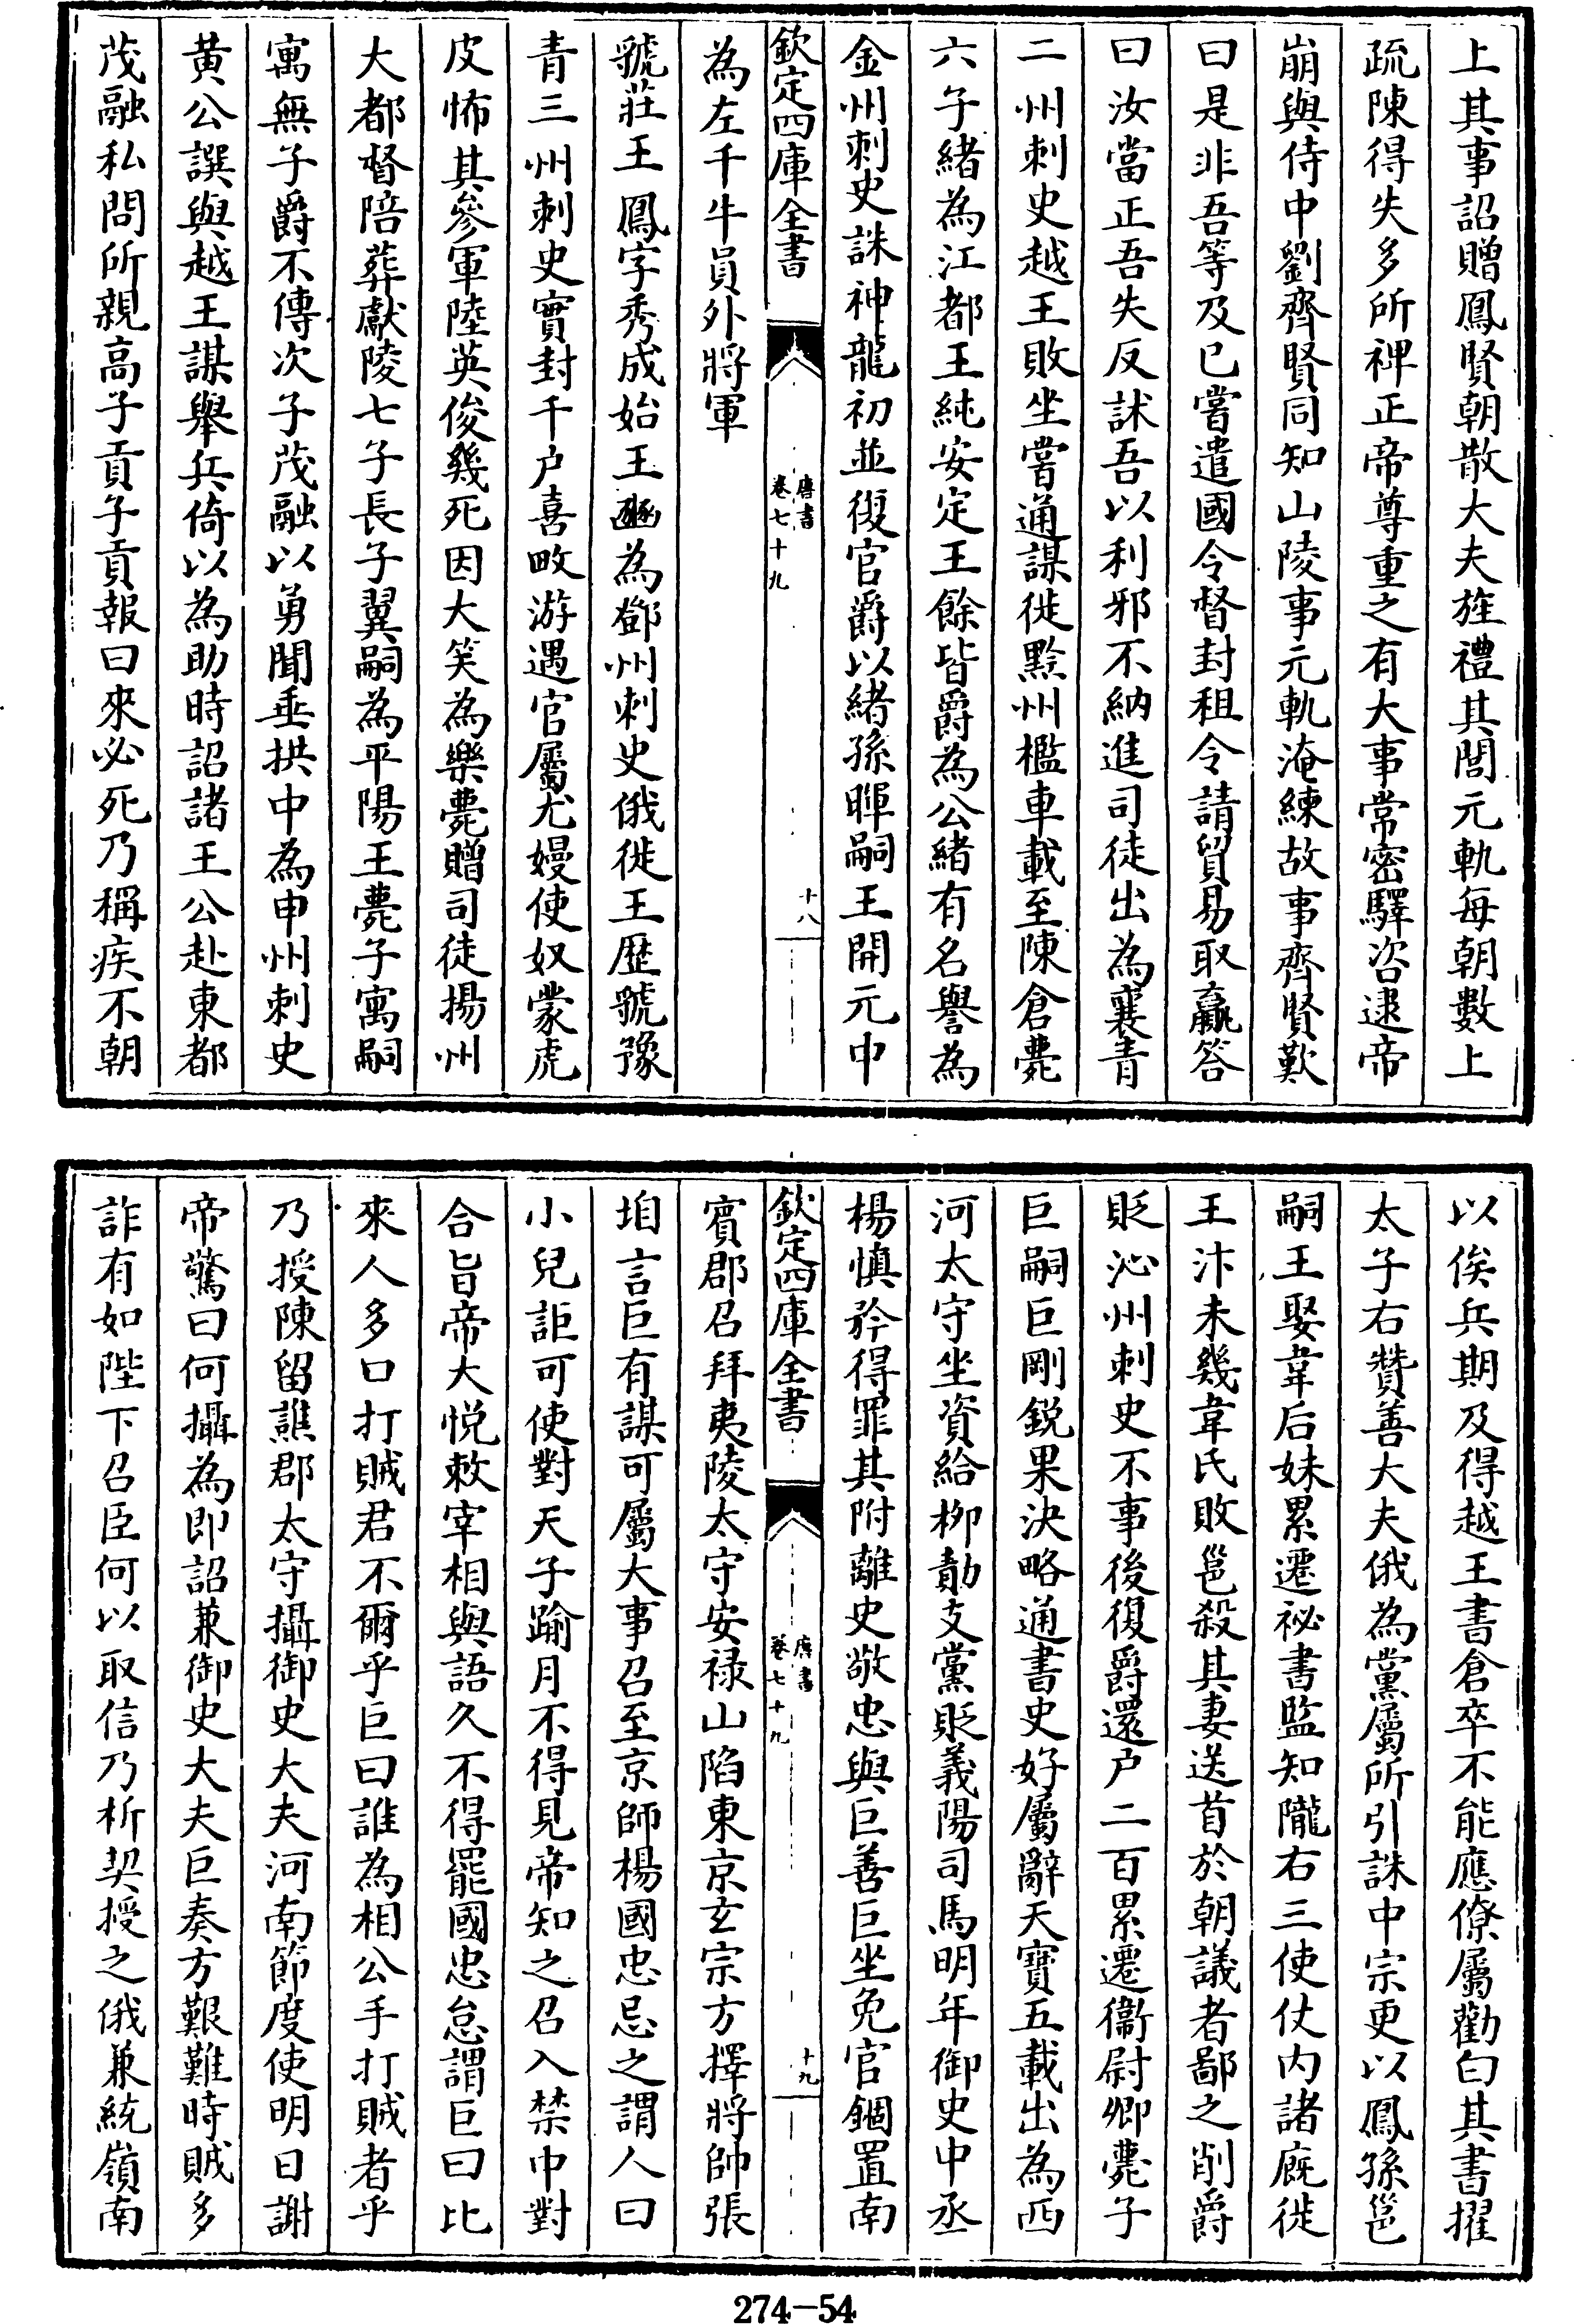 上其事詔贈鳳賢朝散大夫旌禮其閭元軌每朝數上
疏陳得失多所裨正帝尊重之有大事常密驛咨逮帝
崩與侍中劉齊賢同知山陵事元軌淹練故事齊賢歎
曰是非吾等及已嘗遣國令督封租令請貿易取贏答
曰汝當正吾失反訹吾以利邪不納進司徒出為襄青
二州刺史越王敗坐嘗通謀徙黔州檻車載至陳倉薨
六子緒為江都王純安定王餘皆爵為公緒有名譽為
金州刺史誅神龍初並復官爵以緒孫暉嗣王開元中
欽定四庫全書
唐書
卷七十九
十八
為左千牛員外將軍
虢莊王鳳字秀成始王豳為鄧州刺史俄徙王歷虢豫
青三州刺史實封千户喜畋游遇官屬尤嫚使奴蒙虎
皮怖其參軍陸英俊幾死因大笑為樂薨贈司徒揚州
大都督陪葬獻陵七子長子翼嗣為平陽王薨子寓嗣
寓無子爵不傳次子茂融以勇聞垂拱中為申州刺史
黄公譔與越王謀舉兵倚以為助時詔諸王公赴東都
茂融私問所親高子貢子貢報曰來必死乃稱疾不朝
以俟兵期及得越王書倉卒不能應僚屬勸白其書擢
太子右贊善大夫俄為黨屬所引誅中宗更以鳳孫邕
嗣王娶韋后妹累遷祕書監知隴右三使仗内諸廐徙
王汴未幾韋氏敗邕殺其妻送首於朝議者鄙之削爵
貶沁州刺史不事後復爵還户二百累遷衞尉卿薨子
巨嗣巨剛鋭果決略通書史好屬辭天寶五載出為西
河太守坐資給栁勣支黨貶義陽司馬明年御史中丞
楊慎矜得罪其附離史敬忠與巨善巨坐免官錮置南
欽定四庫全書
唐書
卷七十九
十九
賓郡召拜夷陵太守安禄山陷東京玄宗方擇將帥張
垍言巨有謀可屬大事召至京師楊國忠忌之謂人曰
小兒詎可使對天子踰月不得見帝知之召入禁中對
合旨帝大悦敕宰相與語久不得罷國忠怠謂巨曰比
來人多口打賊君不爾乎巨曰誰為相公手打賊者乎
乃授陳留譙郡太守攝御史大夫河南節度使明日謝
帝驚曰何攝為即詔兼御史大夫巨奏方艱難時賊多
詐有如陛下召臣何以取信乃析契授之俄兼統嶺南
274-54